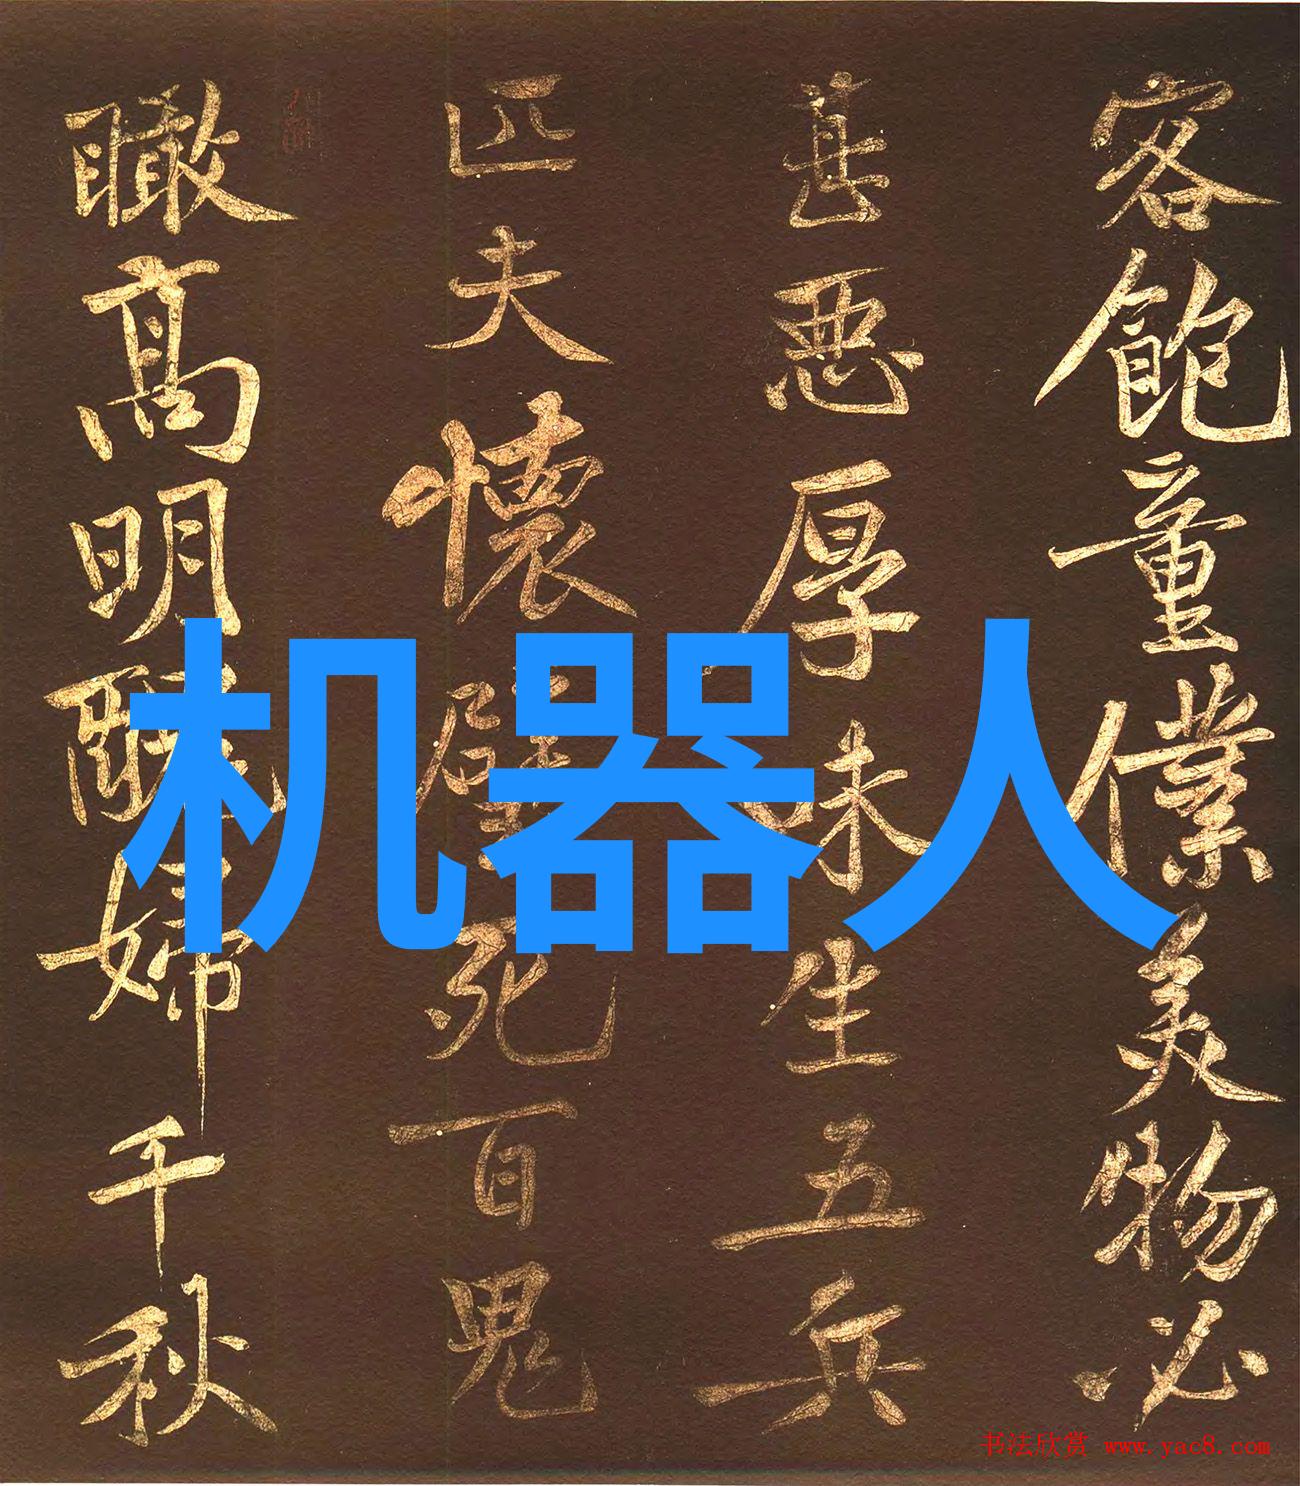 客飽童僕美物必
甚悪厚味生五兵
匹夫懷璧死百鬼
瞰髙明醜婦千秋
机器人
书法欣赏 www.yac8.com